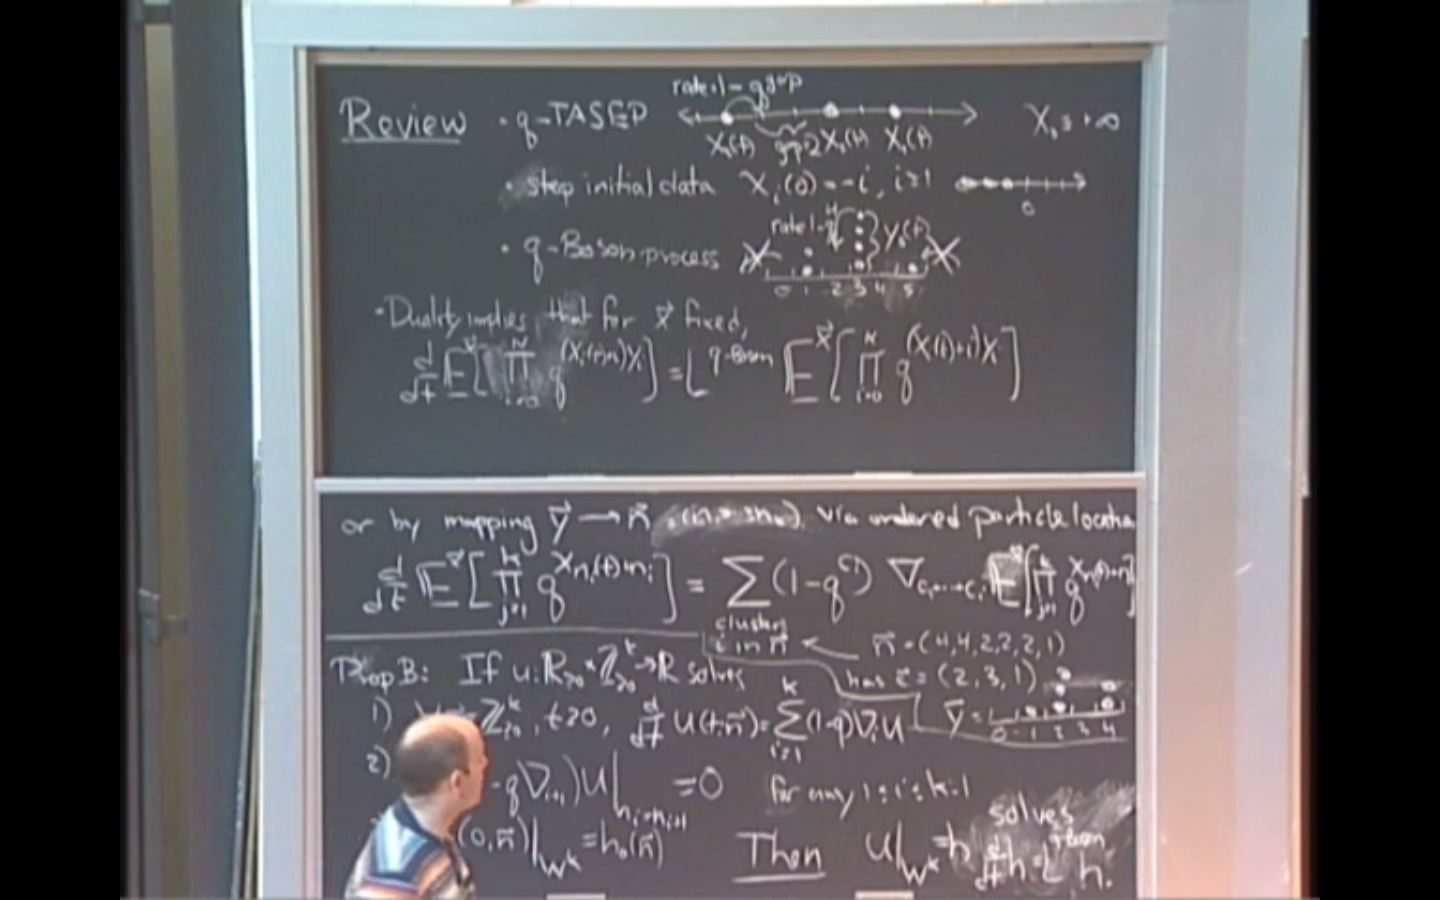 Review · q-TASEP rate 1-q^gap X₀ ≡ +∞
gap=2
· step initial data X_i(0) = -i, i≥1
0
· q-Boson process rate 1-q^4
0 1 2 3 4 5
· Duality implies, that for x⃗ fixed,
d/dt E^x⃗[∏_{i=0}^N q^{(X_i(t)+i)y_i}] = L^{q-Boson} E^x⃗[∏_{i=0}^N q^{(X_i(t)+i)y_i}]
or by mapping y⃗ → n⃗ via ordered particle locatio
d/dt E^x⃗[∏_{j=1}^k q^{X_{n_j}(t)+n_j}] = Σ (1-q^{c_i}) ∇_{c_1+...+c_i} E^x⃗[∏_{j=1}^k q^{X_{n_j}(t)+n_j}]
clusters
i in n⃗ ← n⃗ = (4,4,2,2,2,1)
has c⃗ = (2,3,1)
Prop B: If u: R_{≥0} × Z_{≥0}^k → R solves
1) Z_{≥0}^k, t≥0, d/dt u(t,n⃗) = Σ_{i=1}^k (1-q)∇_i u y⃗ =
0 1 2 3 4
2) -q∇_{i+1})u|_{n_i=n_{i+1}} = 0 for any 1≤i≤k-1
(0,n⃗)|_{W^k} = h_0(n⃗) Then u|_{W^k} = h solves
d/dt h = L^{q-Boson} h.